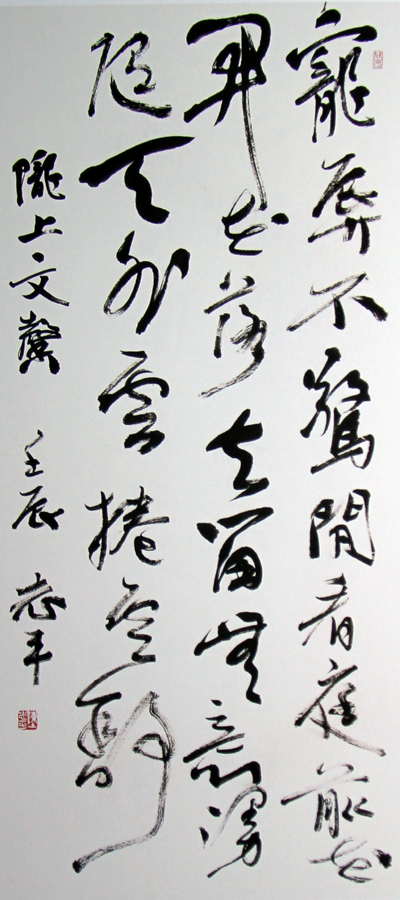 寵辱不驚閒看庭前花
開花落去留無意漫
隨天外雲捲雲舒
隴上文 壬辰 志平